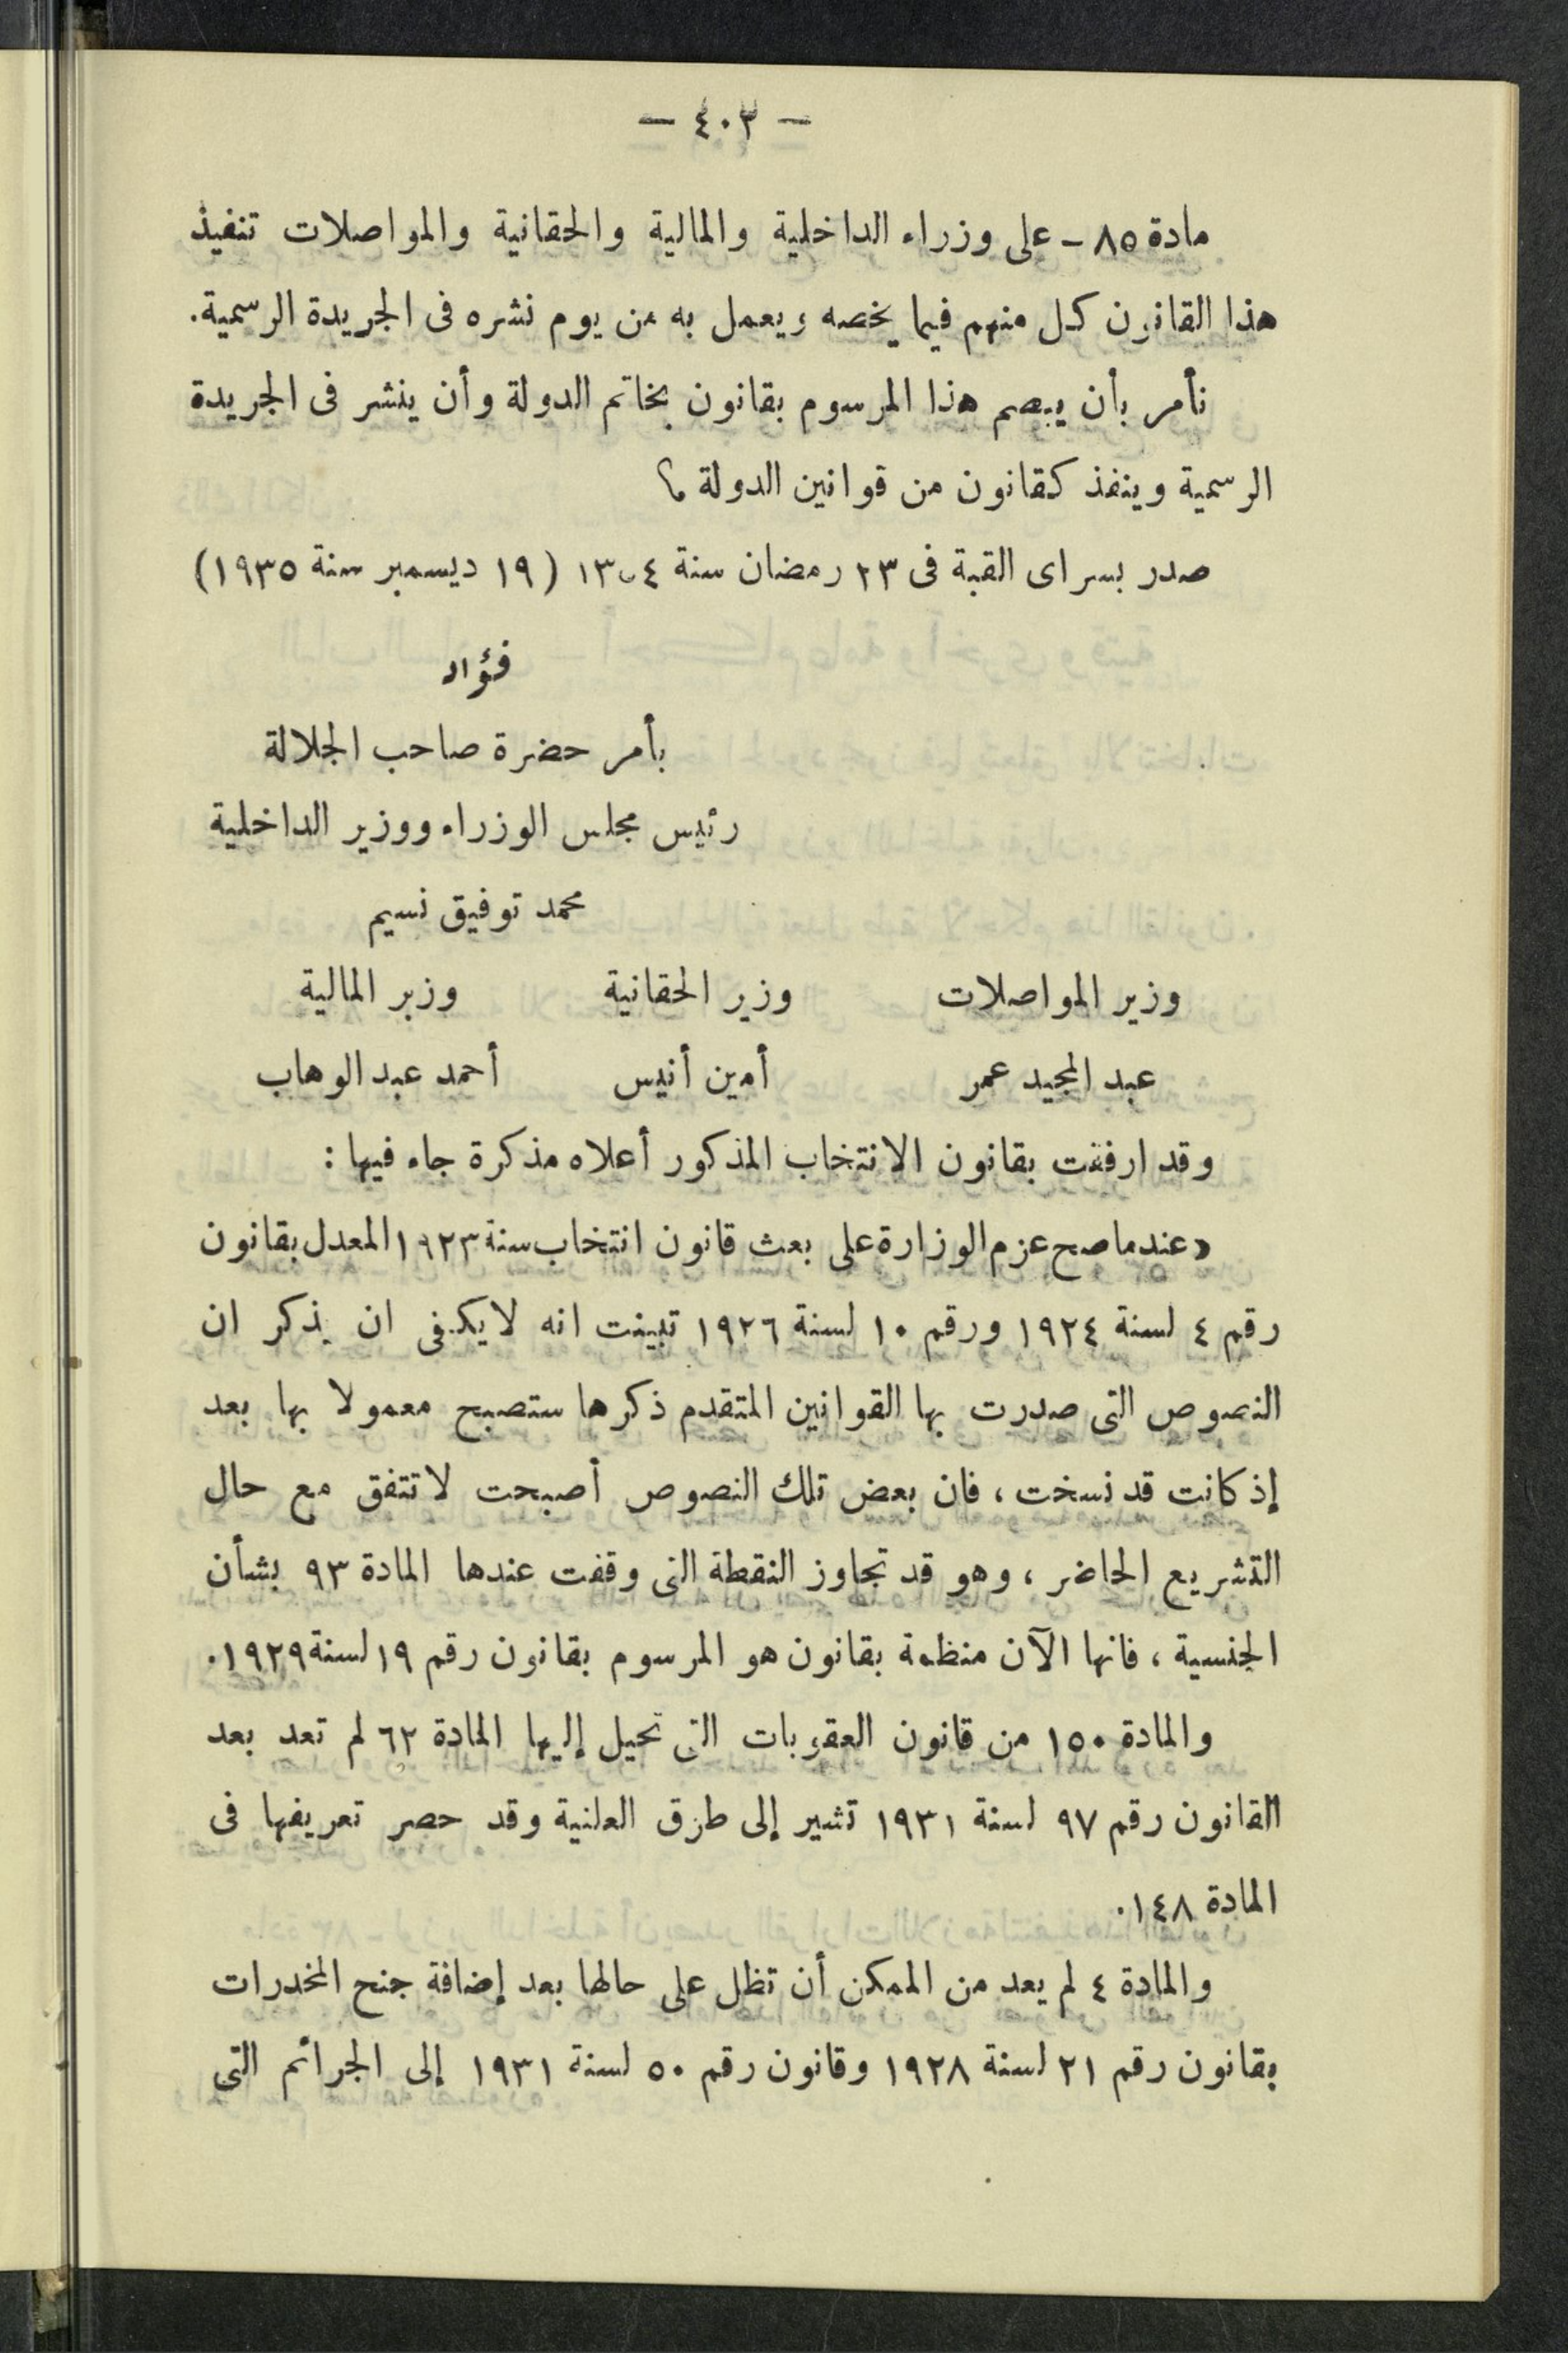 — ٤٠٣ —
مادة ٨٥ - على وزراء الداخلية والمالية والحقانية والمواصلات تنفيذ
هذا القانون كل منهم فيما يخصه ويعمل به من يوم نشره فى الجريدة الرسمية.
نأمر بأن يبصم هذا المرسوم بقانون بخاتم الدولة وأن ينشر فى الجريدة
الرسمية وينفذ كقانون من قوانين الدولة ؟
صدر بسراى القبة فى ٢٣ رمضان سنة ١٣٥٤ (١٩ ديسمبر سنة ١٩٣٥)
فؤاد
بأمر حضرة صاحب الجلالة
رئيس مجلس الوزراء ووزير الداخلية
محمد توفيق نسيم
وزير المواصلات وزير الحقانية وزير المالية
عبد المجيد عمر أمين أنيس أحمد عبد الوهاب
وقد ارفقت بقانون الانتخاب المذكور أعلاه مذكرة جاء فيها :
«عندما صح عزم الوزارة على بعث قانون انتخاب سنة ١٩٢٣ المعدل بقانون
رقم ٤ لسنة ١٩٢٤ ورقم ١٠ لسنة ١٩٢٦ تبينت انه لايكفى ان يذكر ان
النصوص التى صدرت بها القوانين المتقدم ذكرها ستصبح معمولا بها بعد
إذ كانت قد نسخت ، فان بعض تلك النصوص أصبحت لا تتفق مع حال
التشريع الحاضر ، وهو قد تجاوز النقطة التى وقفت عندها المادة ٩٣ بشأن
الجنسية ، فانها الآن منظمة بقانون هو المرسوم بقانون رقم ١٩ لسنة ١٩٢٩.
والمادة ١٥٠ من قانون العقوبات التى تحيل إليها المادة ٦٢ لم تعد بعد
القانون رقم ٩٧ لسنة ١٩٣١ تشير إلى طرق العلنية وقد حصر تعريفها فى
المادة ١٤٨.
والمادة ٤ لم يعد من الممكن أن تظل على حالها بعد إضافة جنح المخدرات
بقانون رقم ٢١ لسنة ١٩٢٨ وقانون رقم ٥٠ لسنة ١٩٣١ إلى الجرائم التى